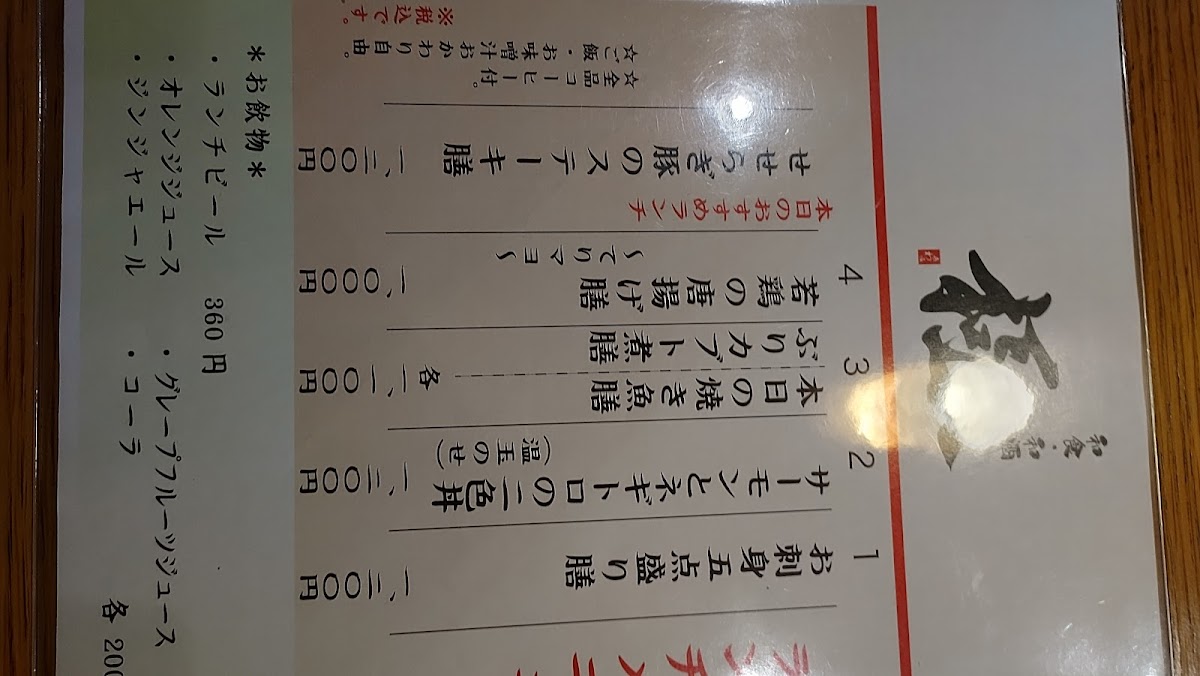 和食・和酒
ランチメニ
1
お刺身五点盛り膳
一、二〇〇円
2
サーモンとネギトロの二色丼
(温玉のせ)
一、二〇〇円
3
本日の焼き魚膳
ぶりカブト煮膳
各一、一〇〇円
4
若鶏の唐揚げ膳
～てりマヨ～
一、〇〇〇円
本日のおすすめランチ
せせらぎ豚のステーキ膳
一、二〇〇円
☆全品コーヒー付。
☆ご飯・お味噌汁おかわり自由。
※税込です。
＊お飲物＊
・ランチビール 360円
・オレンジジュース ・グレープフルーツジュース
・ジンジャエール ・コーラ 各200